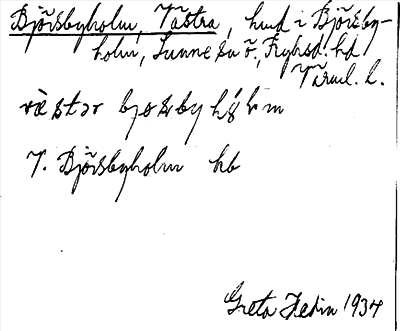 Björsbyholm, Västra, hmd i Björsby-
holm, Sunne sn ö., Fryksd. hd
Värml. l.
västər bjøsbyhålm
V. Björsbyholm hb
Greta Hedin 1934